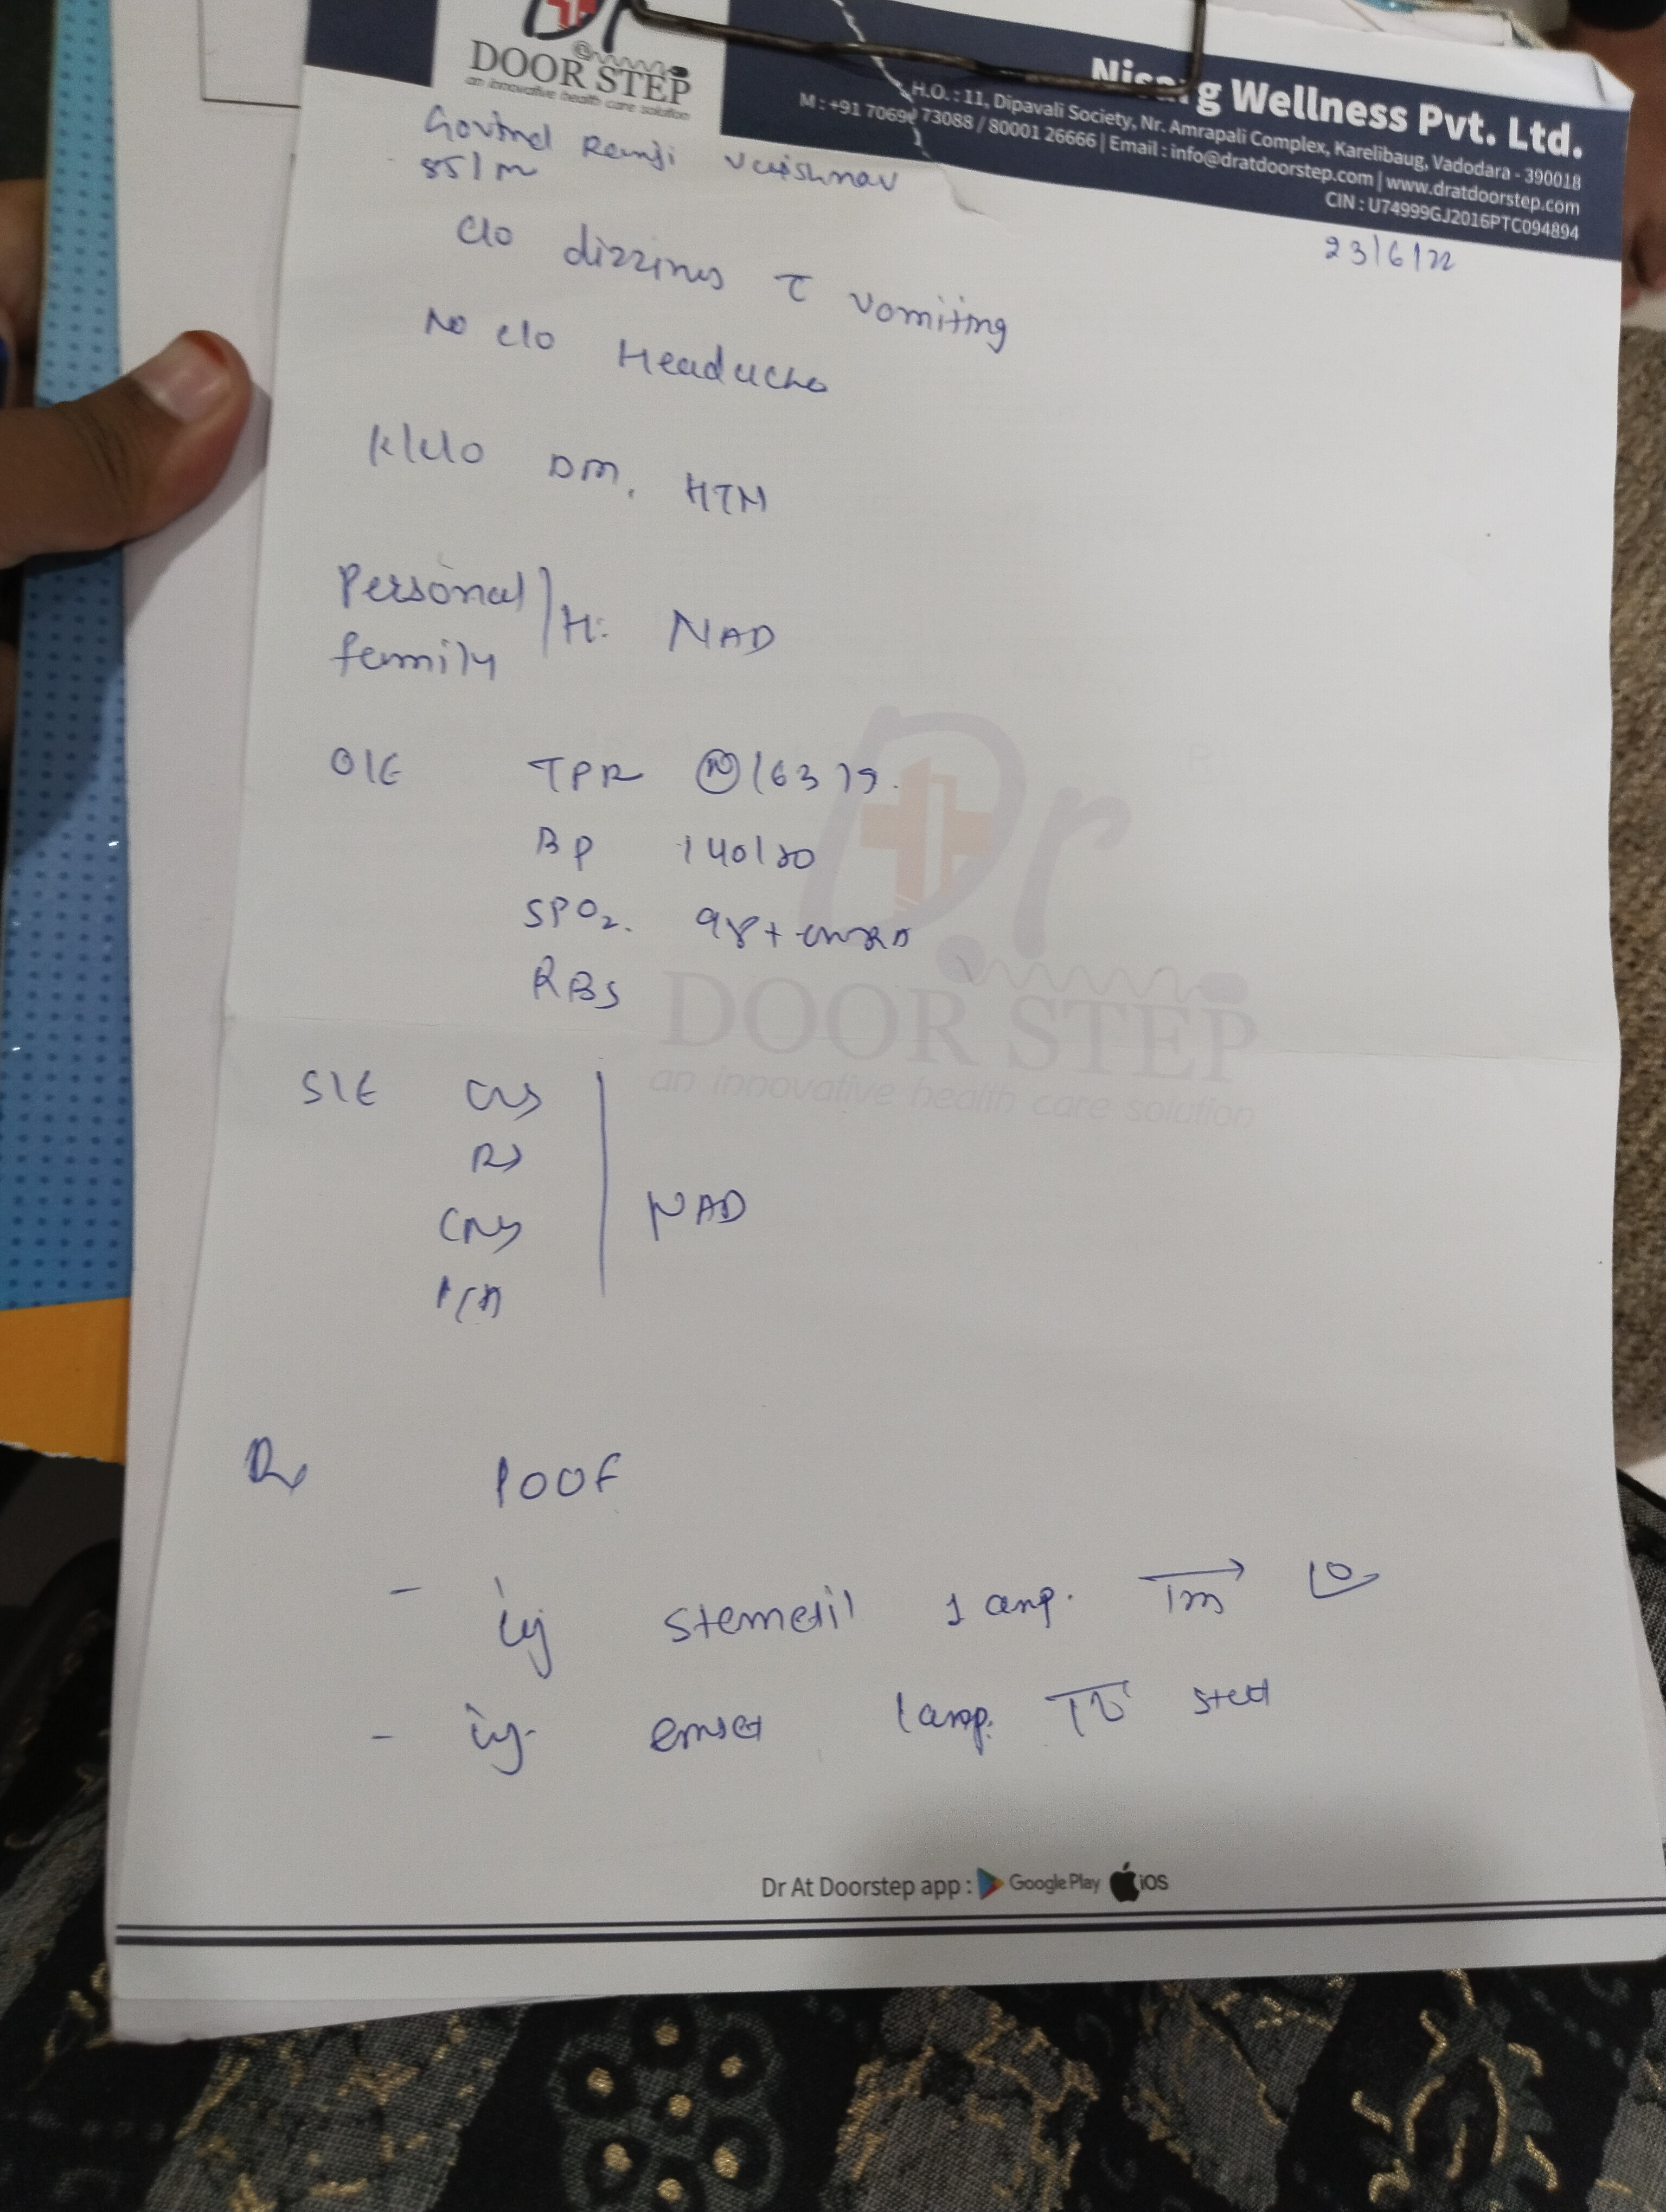 Dr
DOOR STEP
an innovative health care solution
Nisarg Wellness Pvt. Ltd.
H.O. : 11, Dipavali Society, Nr. Amrapali Complex, Karelibaug, Vadodara - 390018
M : +91 7069 73088 / 80001 26666 | Email : info@dratdoorstep.com | www.dratdoorstep.com
CIN : U74999GJ2016PTC094894
23/6/22
Govind Ramji Vaishnav
85/m
C/o dizzines c vomiting
No c/o Headache
K/c/o DM, HTN
Personal
family
H: NAD
O/E TPR (N) / 63 / 19.
BP 140/80
SPO2. 98% on RA
RBS
S/E CVS
RS
CNS
P/A
NAD
Rx 100F
- inj stemetil 1 amp. IM
- inj. emset 1 amp. IV stat
Dr
®
DOOR STEP
an innovative health care solution
Dr At Doorstep app : Google Play iOS